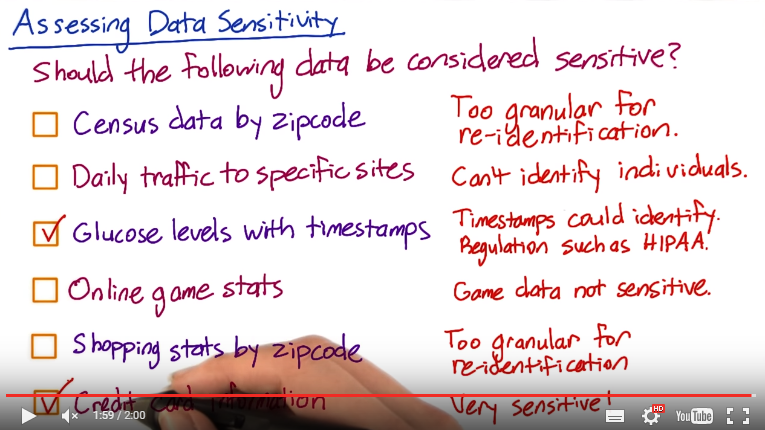 Assessing Data Sensitivity
Should the following data be considered sensitive?
Census data by zipcode
Too granular for
re-identification.
Daily traffic to specific sites
Can't identify individuals.
Glucose levels with timestamps
Timestamps could identify.
Regulation such as HIPAA.
Online game stats
Game data not sensitive.
Shopping stats by zipcode
Too granular for
re-identification
Credit card information
Very sensitive!
1:59 / 2:00
HD
YouTube